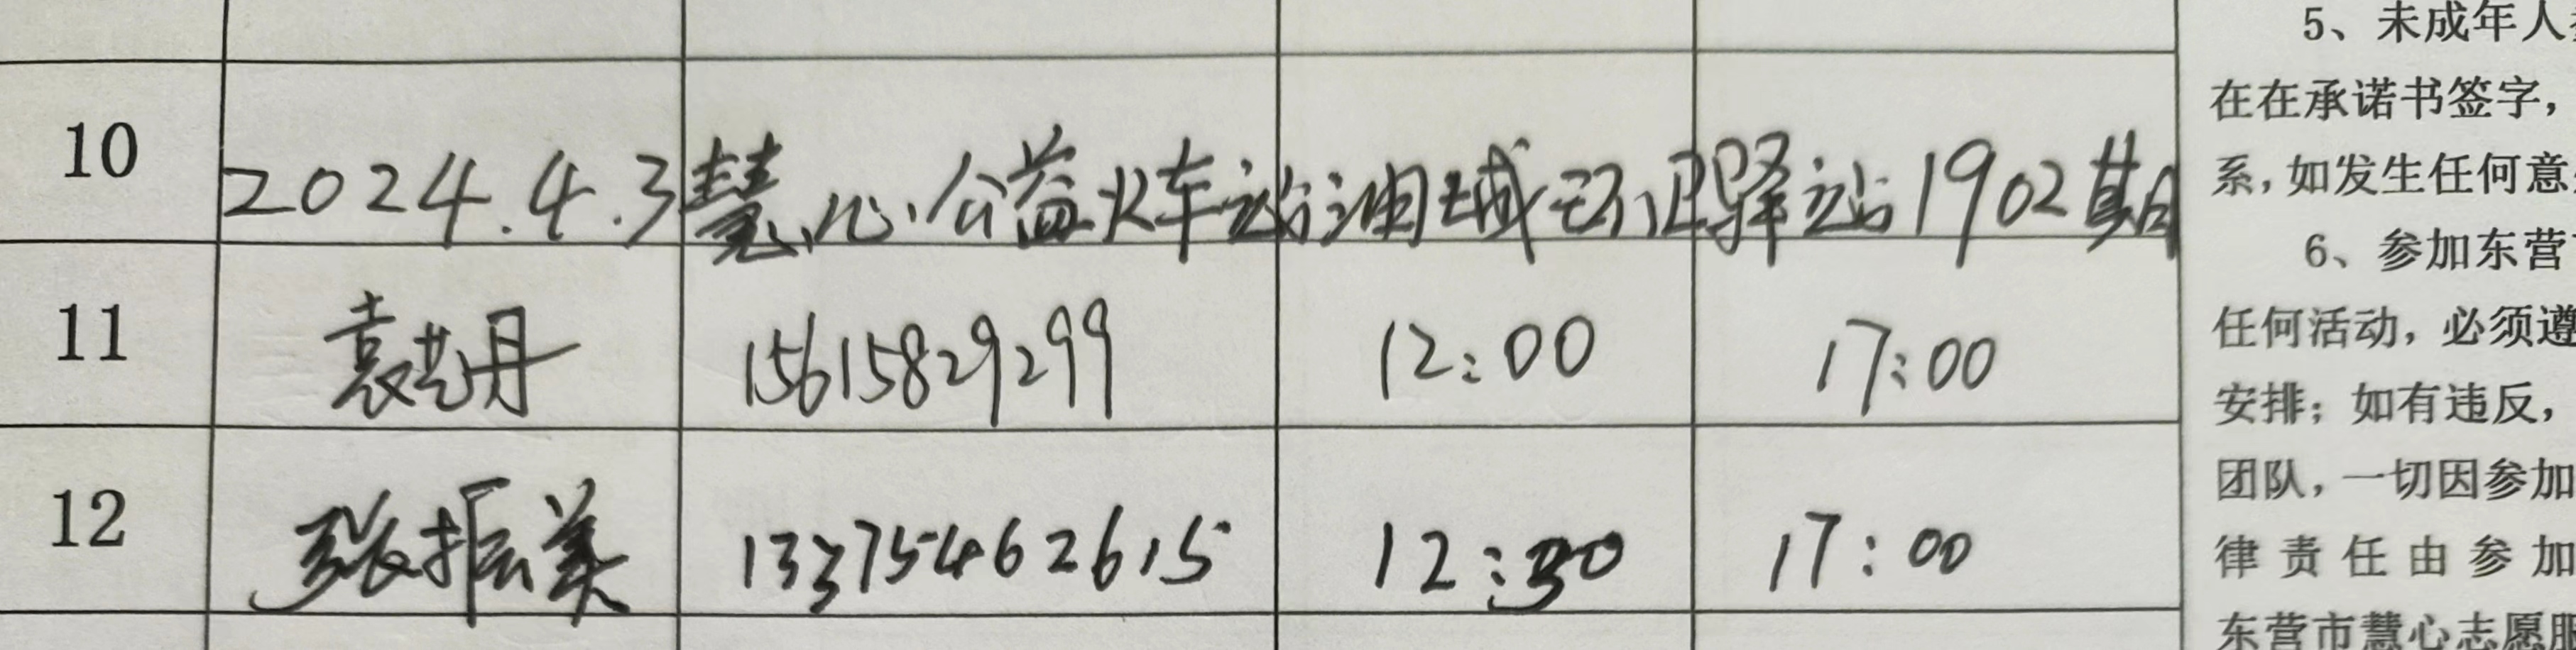 10 2024.4.3慧心公益火车站油城环卫驿站1902期
11 袁艺丹 15615829299 12:00 17:00
12 张振美 13375462615 12:30 17:00
5、未成年人
在在承诺书签字，
系，如发生任何意
6、参加东营
任何活动，必须遵
安排；如有违反，
团队，一切因参加
律责任由参加
东营市慧心志愿服